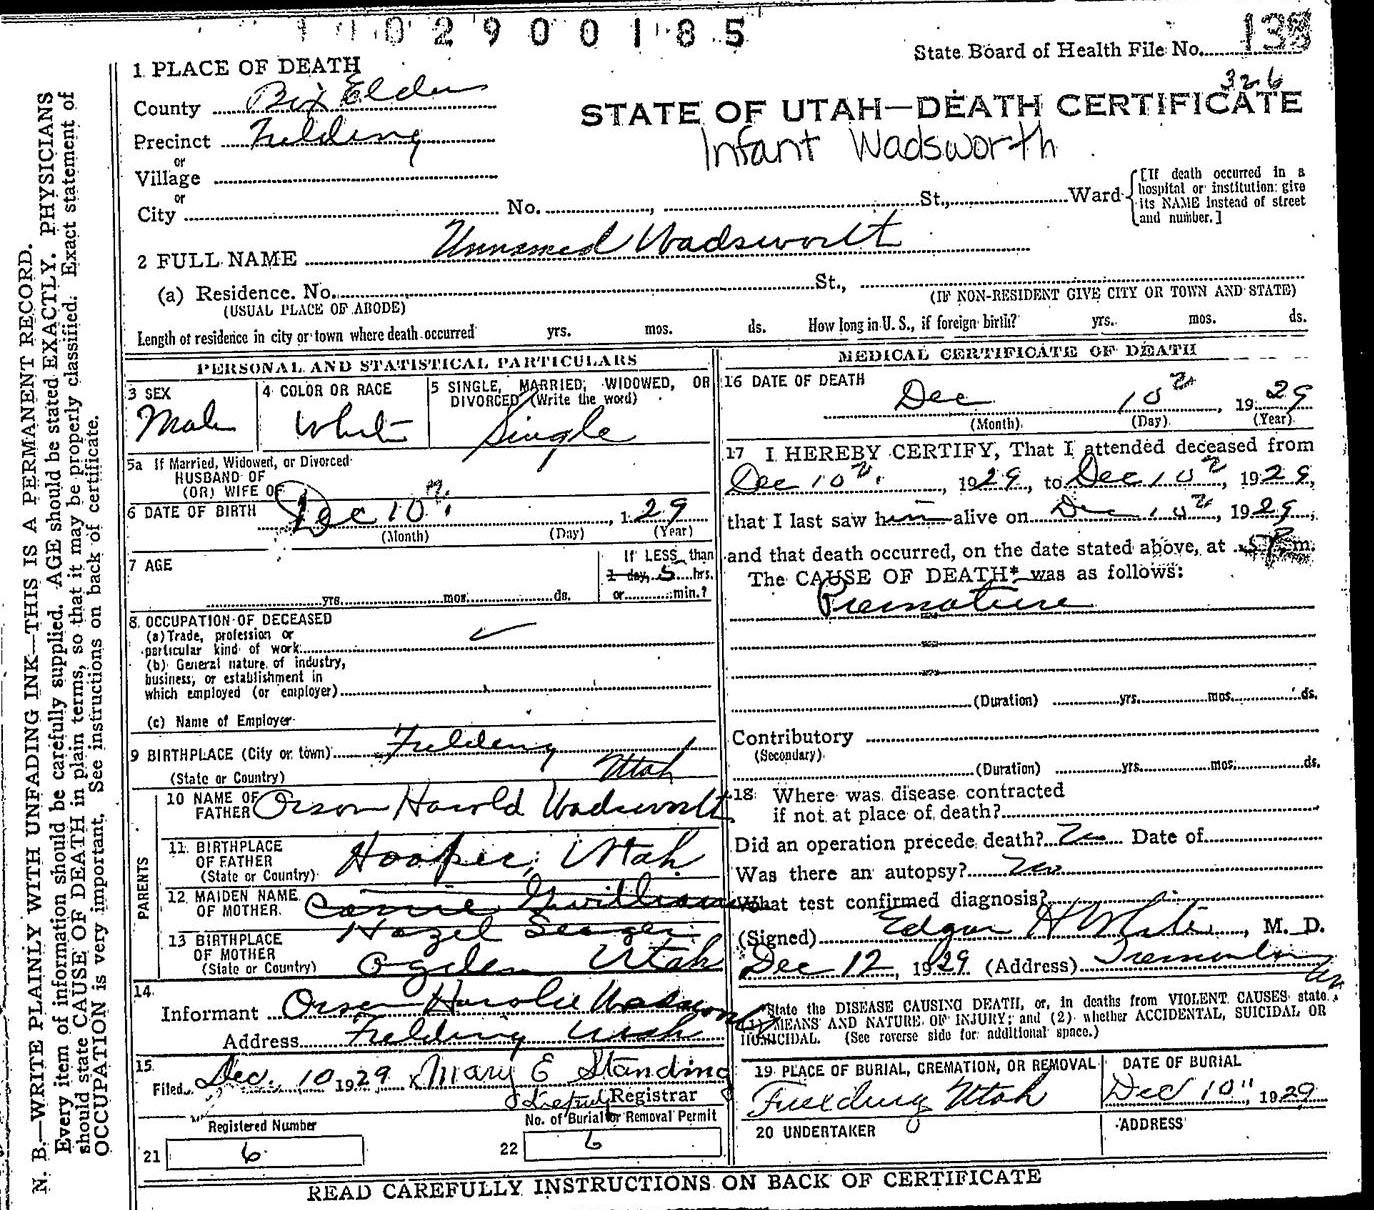 1 0 0 2 9 0 0 1 8 5
State Board of Health File No. 138
326
1 PLACE OF DEATH
County Box Elder
STATE OF UTAH—DEATH CERTIFICATE
Precinct Fielding
Infant Wadsworth
or
Village
or
City No. , St., Ward
[If death occurred in a
hospital or institution give
its NAME instead of street
and number.]
2 FULL NAME Unnamed Wadsworth
(a) Residence. No. St.,
(USUAL PLACE OF ABODE) (IF NON-RESIDENT GIVE CITY OR TOWN AND STATE)
Length of residence in city or town where death occurred yrs. mos. ds. How long in U. S., if foreign birth? yrs. mos. ds.
PERSONAL AND STATISTICAL PARTICULARS
3 SEX
Male
4 COLOR OR RACE
White
5 SINGLE, MARRIED, WIDOWED, OR
DIVORCED (Write the word)
Single
5a If Married, Widowed, or Divorced
HUSBAND OF
(OR) WIFE OF
6 DATE OF BIRTH Dec 10th , 1 29
(Month) (Day) (Year)
7 AGE
yrs. mos. ds.
If LESS than
1 day, 5 hrs.
or min.?
8 OCCUPATION OF DECEASED
(a) Trade, profession or
particular kind of work
(b) General nature of industry,
business, or establishment in
which employed (or employer)
(c) Name of Employer
9 BIRTHPLACE (City or town) Fielding
(State or Country) Utah
PARENTS
10 NAME OF
FATHER Orson Harold Wadsworth
11 BIRTHPLACE
OF FATHER
(State or Country) Hooper, Utah
12 MAIDEN NAME
OF MOTHER Gwilliams
Hazel Seager
13 BIRTHPLACE
OF MOTHER
(State or Country) Ogden Utah
14
Informant Orson Harold Wadsworth
Address Fielding Utah
15
Filed Dec. 10 1929 Mary E Standing
Deputy Registrar
Registered Number
21 6
No. of Burial or Removal Permit
22 6
MEDICAL CERTIFICATE OF DEATH
16 DATE OF DEATH
Dec 10th , 19 29
(Month) (Day) (Year)
17 I HEREBY CERTIFY, That I attended deceased from
Dec 10th , 1929, to Dec 10th , 1929,
that I last saw him alive on Dec 10th, 1929,
and that death occurred, on the date stated above, at 5 P m.
The CAUSE OF DEATH* was as follows:
Premature
(Duration) yrs. mos. ds.
Contributory
(Secondary)
(Duration) yrs. mos. ds.
18 Where was disease contracted
if not at place of death?
Did an operation precede death? No Date of
Was there an autopsy? No
What test confirmed diagnosis?
(Signed) Edgar H White, M. D.
Dec 12, 1929 (Address) Tremonton
Ut
*State the DISEASE CAUSING DEATH, or, in deaths from VIOLENT CAUSES state
(1) MEANS AND NATURE OF INJURY; and (2) whether ACCIDENTAL, SUICIDAL OR
HOMICIDAL. (See reverse side for additional space.)
19 PLACE OF BURIAL, CREMATION, OR REMOVAL
Fielding Utah
DATE OF BURIAL
Dec 10", 1929
20 UNDERTAKER
ADDRESS
READ CAREFULLY INSTRUCTIONS ON BACK OF CERTIFICATE
N. B.—WRITE PLAINLY WITH UNFADING INK—THIS IS A PERMANENT RECORD.
Every item of information should be carefully supplied. AGE should be stated EXACTLY. PHYSICIANS
should state CAUSE OF DEATH in plain terms, so that it may be properly classified. Exact statement of
OCCUPATION is very important. See instructions on back of certificate.